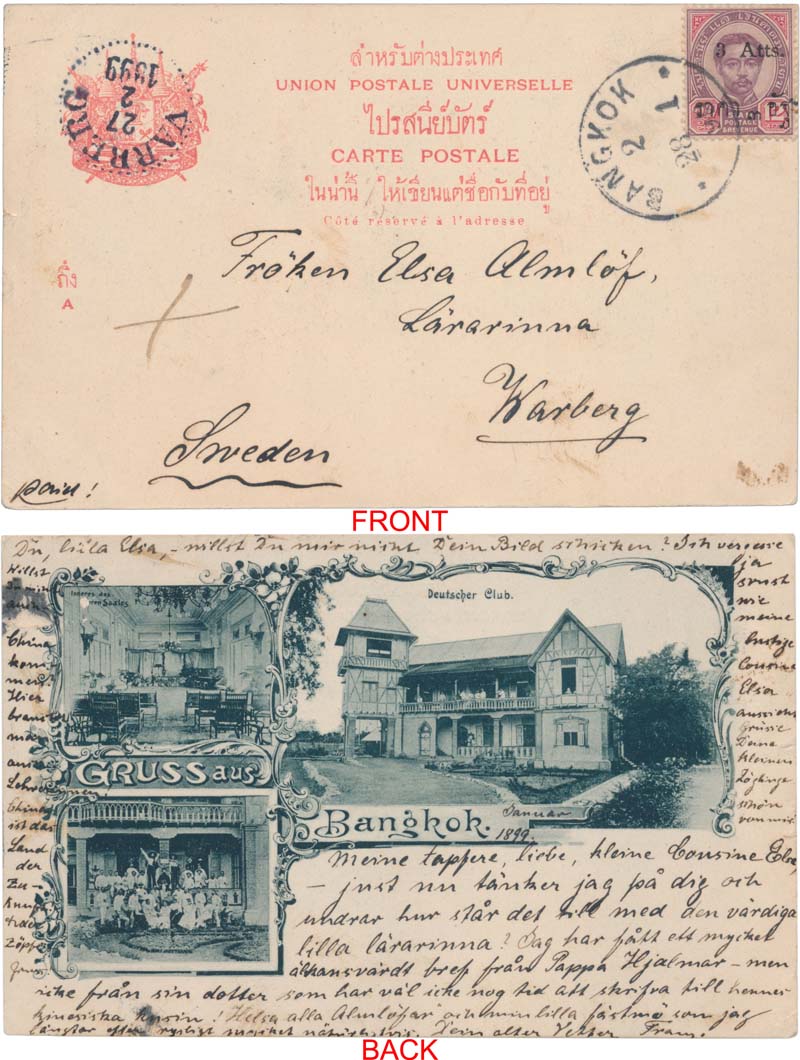 สำหรับต่างประเทศ
UNION POSTALE UNIVERSELLE
ไปรสนียบัตร์
CARTE POSTALE
ในน่านี้ ให้เขียนแต่ชื่อกับที่อยู่
Côté réservé à l'adresse
VARBERG
27
2
1899
BANGKOK
2
1
3 Atts.
SIAM
POSTAGE
& REVENUE
ถึง
A
Fröken Elsa Almlöf,
Lärarinna
Warberg
Sweden
FRONT
Du, lilla Elsa, - willst Du mir nicht Dein Bild schicken? Ich vergesse
ja
sonst
wie
meine
lustige
Cousine
Elsa
aussieht
grüsse
Deine
kleinen
Zöglinge
schön
von mir
Willst
China
kom
mers?
Hier
braucht
man
auch
Lehrerinnen!
China
ist das
Land
der
Zu-
kunft
der
Zöpfe
Inneres des
Saales
Deutscher Club.
GRUSS aus
Bangkok.
Januar
1899.
Meine tapfere, liebe, kleine Cousine Else,
- just nu tänker jag på dig och
undrar hur står det till med den värdiga
lilla lärarinna? Jag har fått ett mycket
älskansvärdt bref från Pappa Hjalmar - men
icke från sin dotter som har väl icke nog tid att skrifva till hennes
kinesiska kusin! Helsa alla Almlöfar och min lilla fästmö som jag
längtar efter mycket Dein alter Vetter Franz.
BACK